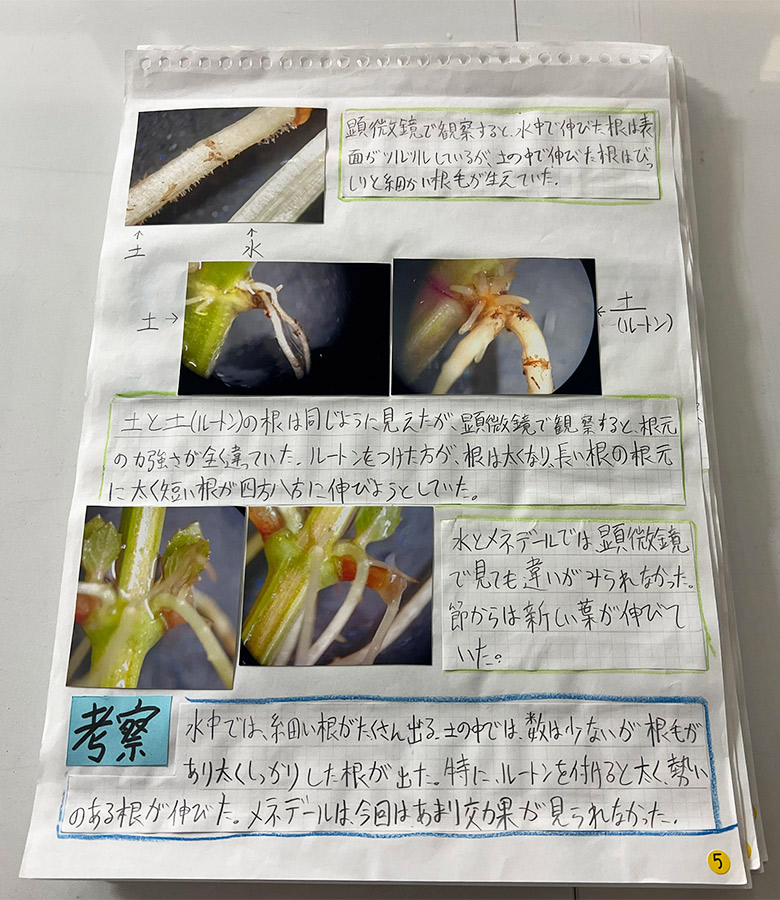 顕微鏡で観察すると、水中で伸びた根は表
面がツルツルしているが、土の中で伸びた根はびっ
しりと細かい根毛が生えていた。
↑
土
↑
水
土→
←土
(ルートン)
土と土(ルートン)の根は同じように見えたが、顕微鏡で観察すると、根元
の力強さが全く違っていた。ルートンをつけた方が、根は太くなり、長い根の根元
に太く短い根が四方八方に伸びようとしていた。
水とメネデールでは顕微鏡
で見ても違いがみられなかった。
節からは新しい葉が伸びて
いた。
考察
水中では、細い根がたくさん出る。土の中では、数は少ないが根毛が
あり太くしっかりした根が出た。特に、ルートンを付けると太く、勢い
のある根が伸びた。メネデールは、今回はあまり効果が見られなかった。
5